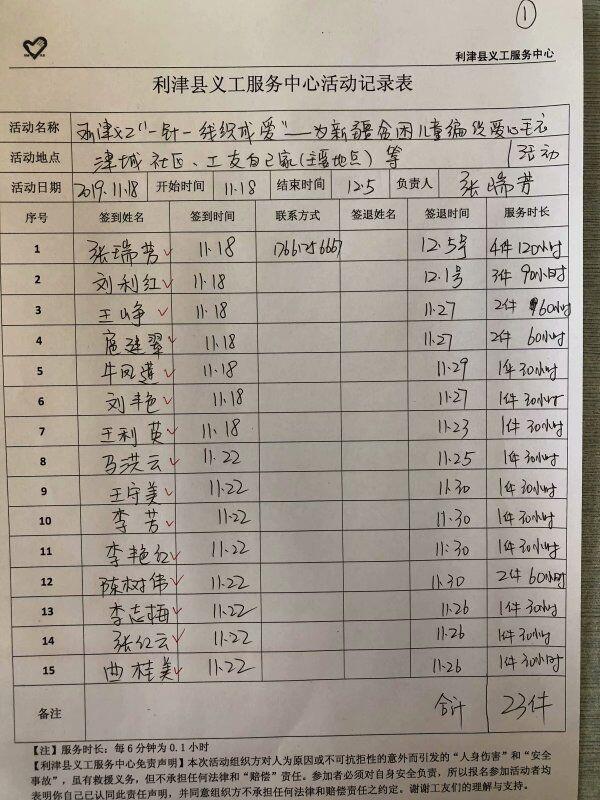 ①
利津县义工服务中心
利津县义工服务中心活动记录表
活动名称 利津义工"一针一线织成爱"——为新疆贫困儿童编织爱心毛衣
活动地点 津城社区、工友自己家(主要地点)等 活动
活动日期 2019.11.18 开始时间 11.18 结束时间 12.5 负责人 张瑞芳
序号 签到姓名 签到时间 联系方式 签退姓名 签退时间 服务时长
1 张瑞芳 11.18 12.5号 4件 120小时
2 刘利红 11.18 12.1号 3件 90小时
3 王峥 11.18 11.27 2件 60小时
4 扈莲翠 11.18 11.27 2件 60小时
5 牛凤莲 11.18 11.29 1件 30小时
6 刘丰艳 11.18 11.27 1件 30小时
7 王利英 11.18 11.23 1件 30小时
8 马洪云 11.22 11.25 1件 30小时
9 王守美 11.22 11.30 1件 30小时
10 李芳 11.22 11.30 1件 30小时
11 李艳红 11.22 11.30 1件 30小时
12 陈树伟 11.22 11.30 2件 60小时
13 李志梅 11.22 11.26 1件 30小时
14 张红云 11.22 11.26 1件 30小时
15 曲桂美 11.22 11.26 1件 30小时
备注 合计 23件
【注】服务时长:每6分钟为0.1小时
【利津县义工服务中心免责声明】本次活动组织方对人为原因或不可抗拒性的意外而引发的"人身伤害"和"安全
事故",虽有救援义务,但不承担任何法律和"赔偿"责任。参加者必须对自身安全负责,所以报名参加活动者均
表明你自己已认同此责任声明,并同意组织方不承担任何法律和赔偿责任之约定。谢谢工友们的理解与支持。